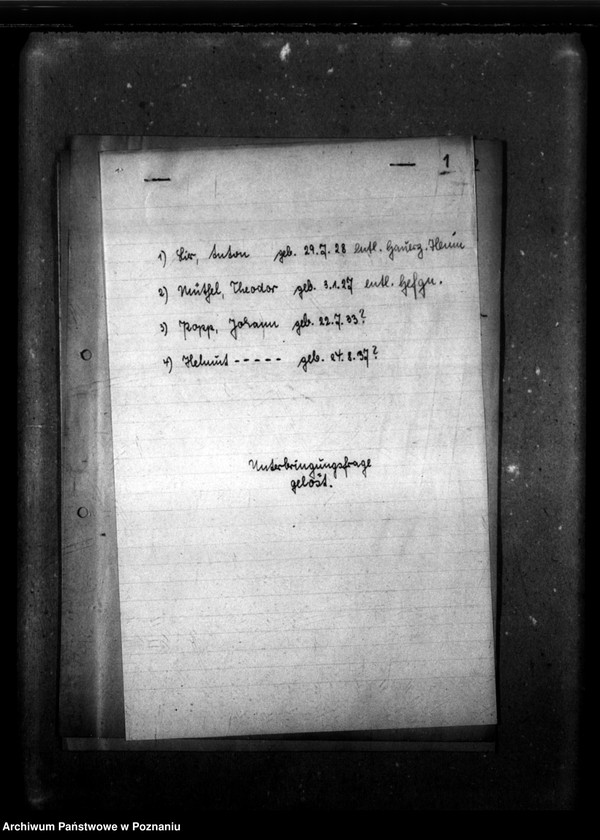 1
1) Sir, Anton geb. 29.7.28 entl.
2) Müthel, Theodor geb. 3.1.27 entl. Gefgn.
3) Popp, Johann geb. 22.7.33?
4) Helmut ----- geb. 24.8.37?
Unterbringungsfrage
gelöst.
Archiwum Państwowe w Poznaniu